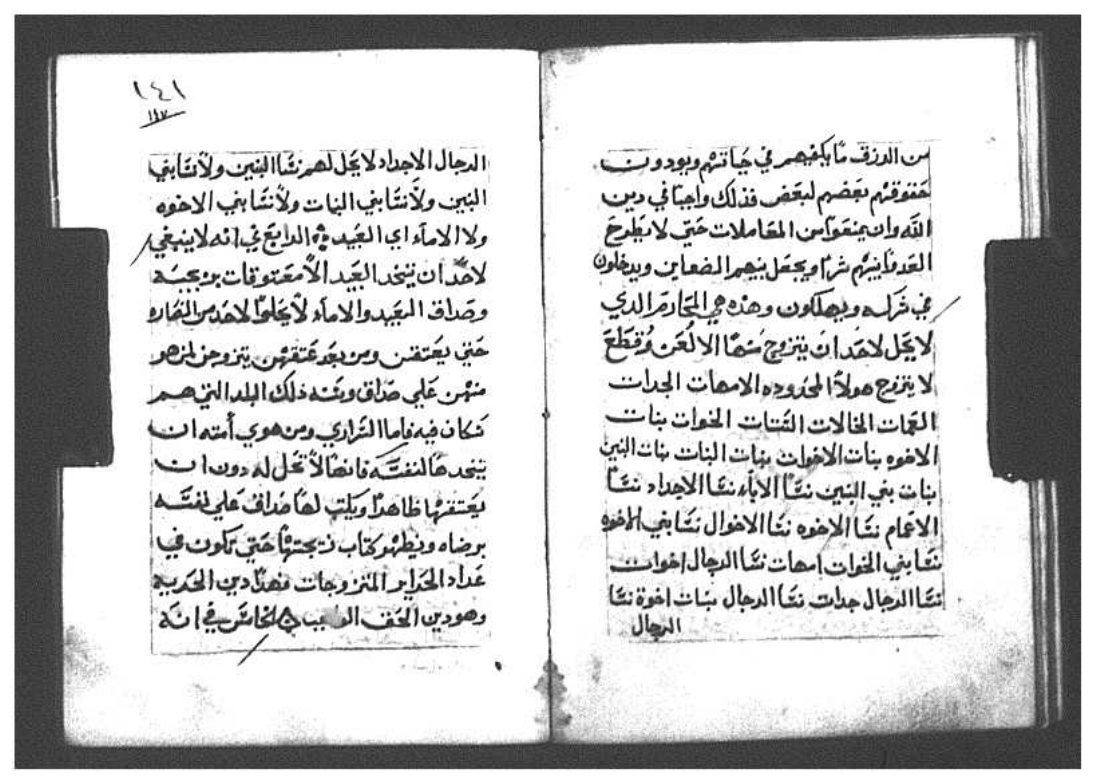 من الرزق ما يكفيهم في حياتهم ويودون
حقوقهم بعضهم لبعض فذلك واجبا في دين
الله وان يمنعوا من المعاملات حتي لا يطرح
العدو فيما بينهم شرا ويجعل بينهم الضغاين ويدخلون
في شركه ويهلكون وهذه هي المحارم الذي
لا يحل لاحد ان يتزوج منها الا لعن وقطع
لا يتزوج هولا المحدوده الامهات الجدات
العمات الخالات الخوات بنات
الاخوه بنات الاخوات بنات البنات بنات البنين
بنات بني البنين نسا الاباء نسا الاجداد نسا
الاعمام نسا الاخوه نسا الاخوال نسا بني الاخوه
نسا بني الخوات امهات نسا الرجال اخوات
نسا الرجال جدات نسا الرجال بنات اخوة نسا
الرجال
١٤١
١٤٧
الرجال الاجداد لا يحل لهم نسا البنين ولا نسا بني
البنين ولا نسا بني البنات ولا نسا بني الاخوه
ولا الاماء اي العبيد الرابع في انه لا ينبغي
لاحد ان يتخد العبيد الا معتوقات بزيجية
وصداق العبيد والاماء لا يحلوا لاحد من النصاره
حتي يعتقن ومن بعد عتقهن يتزوجن لمن هو
منهن علي صداق وسنه ذلك البلد التي هم
سكان فيه فاما السراري ومن هوي أمته ان
يتخدها لنفسه فانها لا تحل له دون ان
يعتقها ظاهرا ويكتب لها صداق علي نفسه
برضاه ويظهر كتاب زيجتها حتي تكون في
عداد الحراير المتزوجات فهذا دين الحرية
وهو دين الحق الخامس في انه